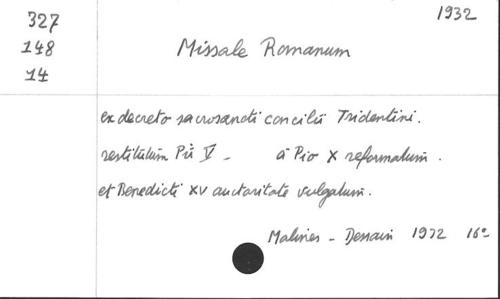 1932
327
148
14
Missale Romanum
ex decreto sacrosancti concilii Tridentini.
restitutum Pii V - a Pio X reformatum.
et Benedicti XV auctoritate vulgatum.
Malines - Dessain 1932 16°